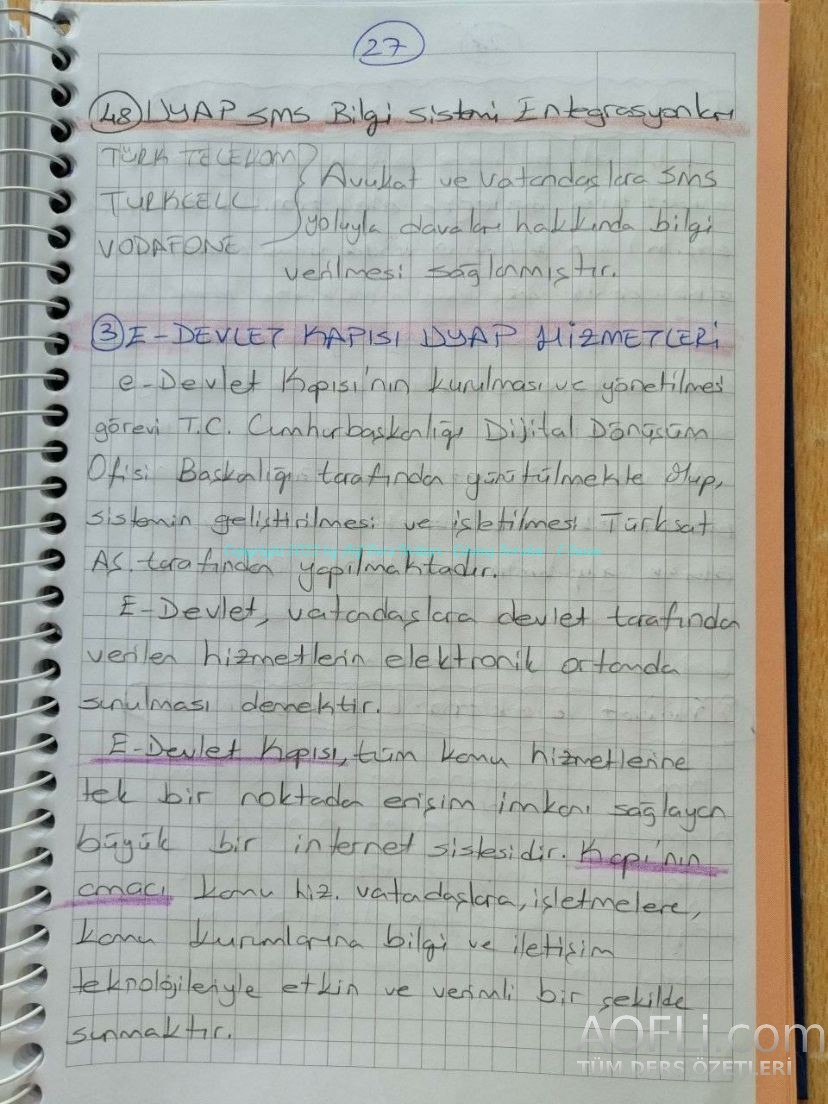 27
48 UYAP SMS Bilgi Sistemi Entegrasyonları
TÜRK TELEKOM
TURKCELL
VODAFONE
Avukat ve vatandaşlara SMS
yoluyla davaları hakkında bilgi
verilmesi sağlanmıştır.
3 E-DEVLET KAPISI UYAP HİZMETLERİ
e-Devlet Kapısı'nın kurulması ve yönetilmesi
görevi T.C. Cumhurbaşkanlığı Dijital Dönüşüm
Ofisi Başkanlığı tarafından yürütülmekte olup,
sistemin geliştirilmesi ve işletilmesi Türksat
AŞ. tarafından yapılmaktadır.
E-Devlet, vatandaşlara devlet tarafından
verilen hizmetlerin elektronik ortamda
sunulması demektir.
E-Devlet Kapısı, tüm kamu hizmetlerine
tek bir noktada erişim imkanı sağlayan
büyük bir internet sistesidir. Kapı'nın
amacı kamu hiz. vatadaşlara, işletmelere,
kamu kurumlarına bilgi ve iletişim
teknolojileriyle etkin ve verimli bir şekilde
sunmaktır.
AOFLi.com
TÜM DERS ÖZETLERİ